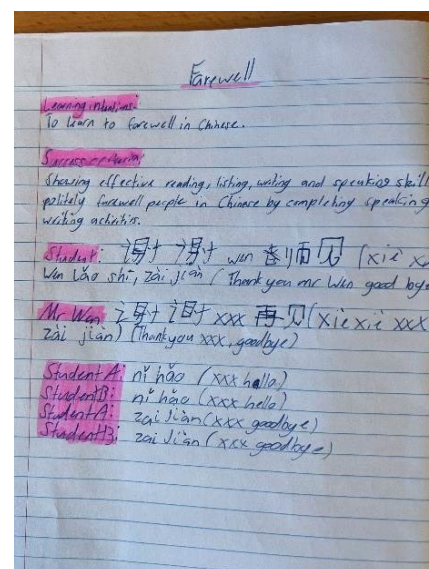 Farewell
Learning intentions:
To learn to farewell in Chinese.
Success criteria:
Showing effective reading, listing, writing and speaking skill
politely farewell people in Chinese by completing speaking
writing activities.
Student: 谢谢 wen 老师见 (xiè x
Wen Lǎo shī, zài jiàn (Thank you mr Wen good bye
Mr Wen 谢谢 xxx 再见 (xiè xiè xxx
zài jiàn) (Thankyou xxx, goodbye)
Student A: nǐ hǎo (xxx hello)
Student B: nǐ hǎo (xxx hello)
Student A: zai jiàn (xxx goodbye)
Student B: zai jiàn (xxx goodbye)